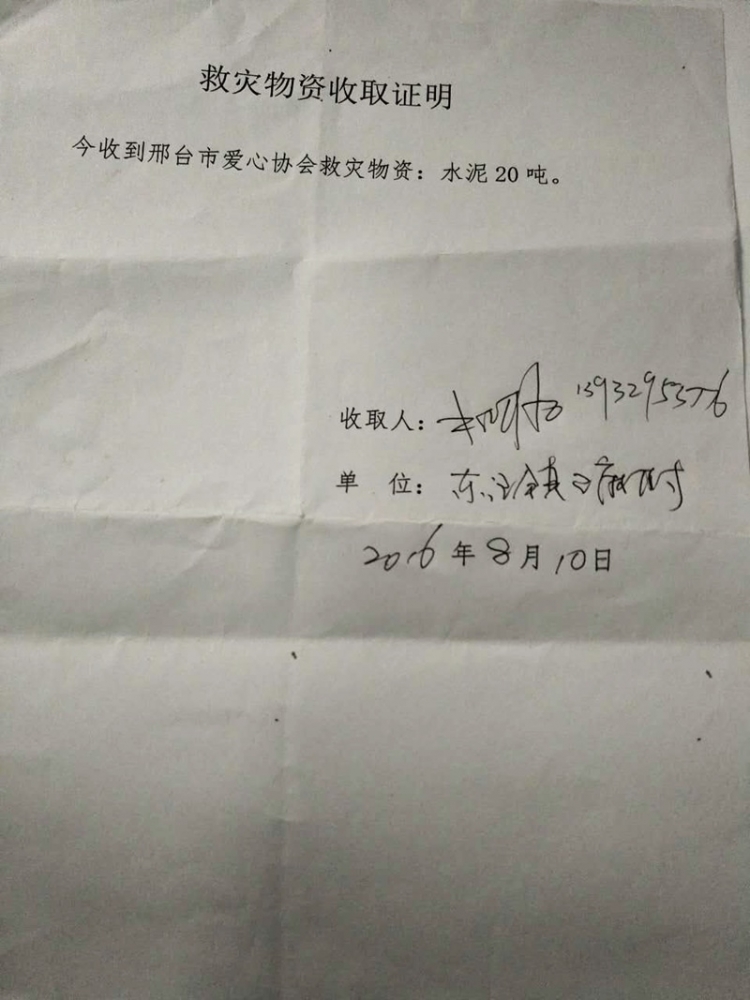 救灾物资收取证明
今收到邢台市爱心协会救灾物资：水泥20吨。
收取人：
单 位：东汪镇
2016年8月10日